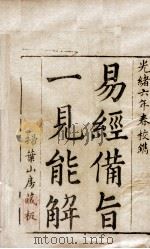 光緒六年春校鐫
易經備旨
一見能解
掃葉山房藏板